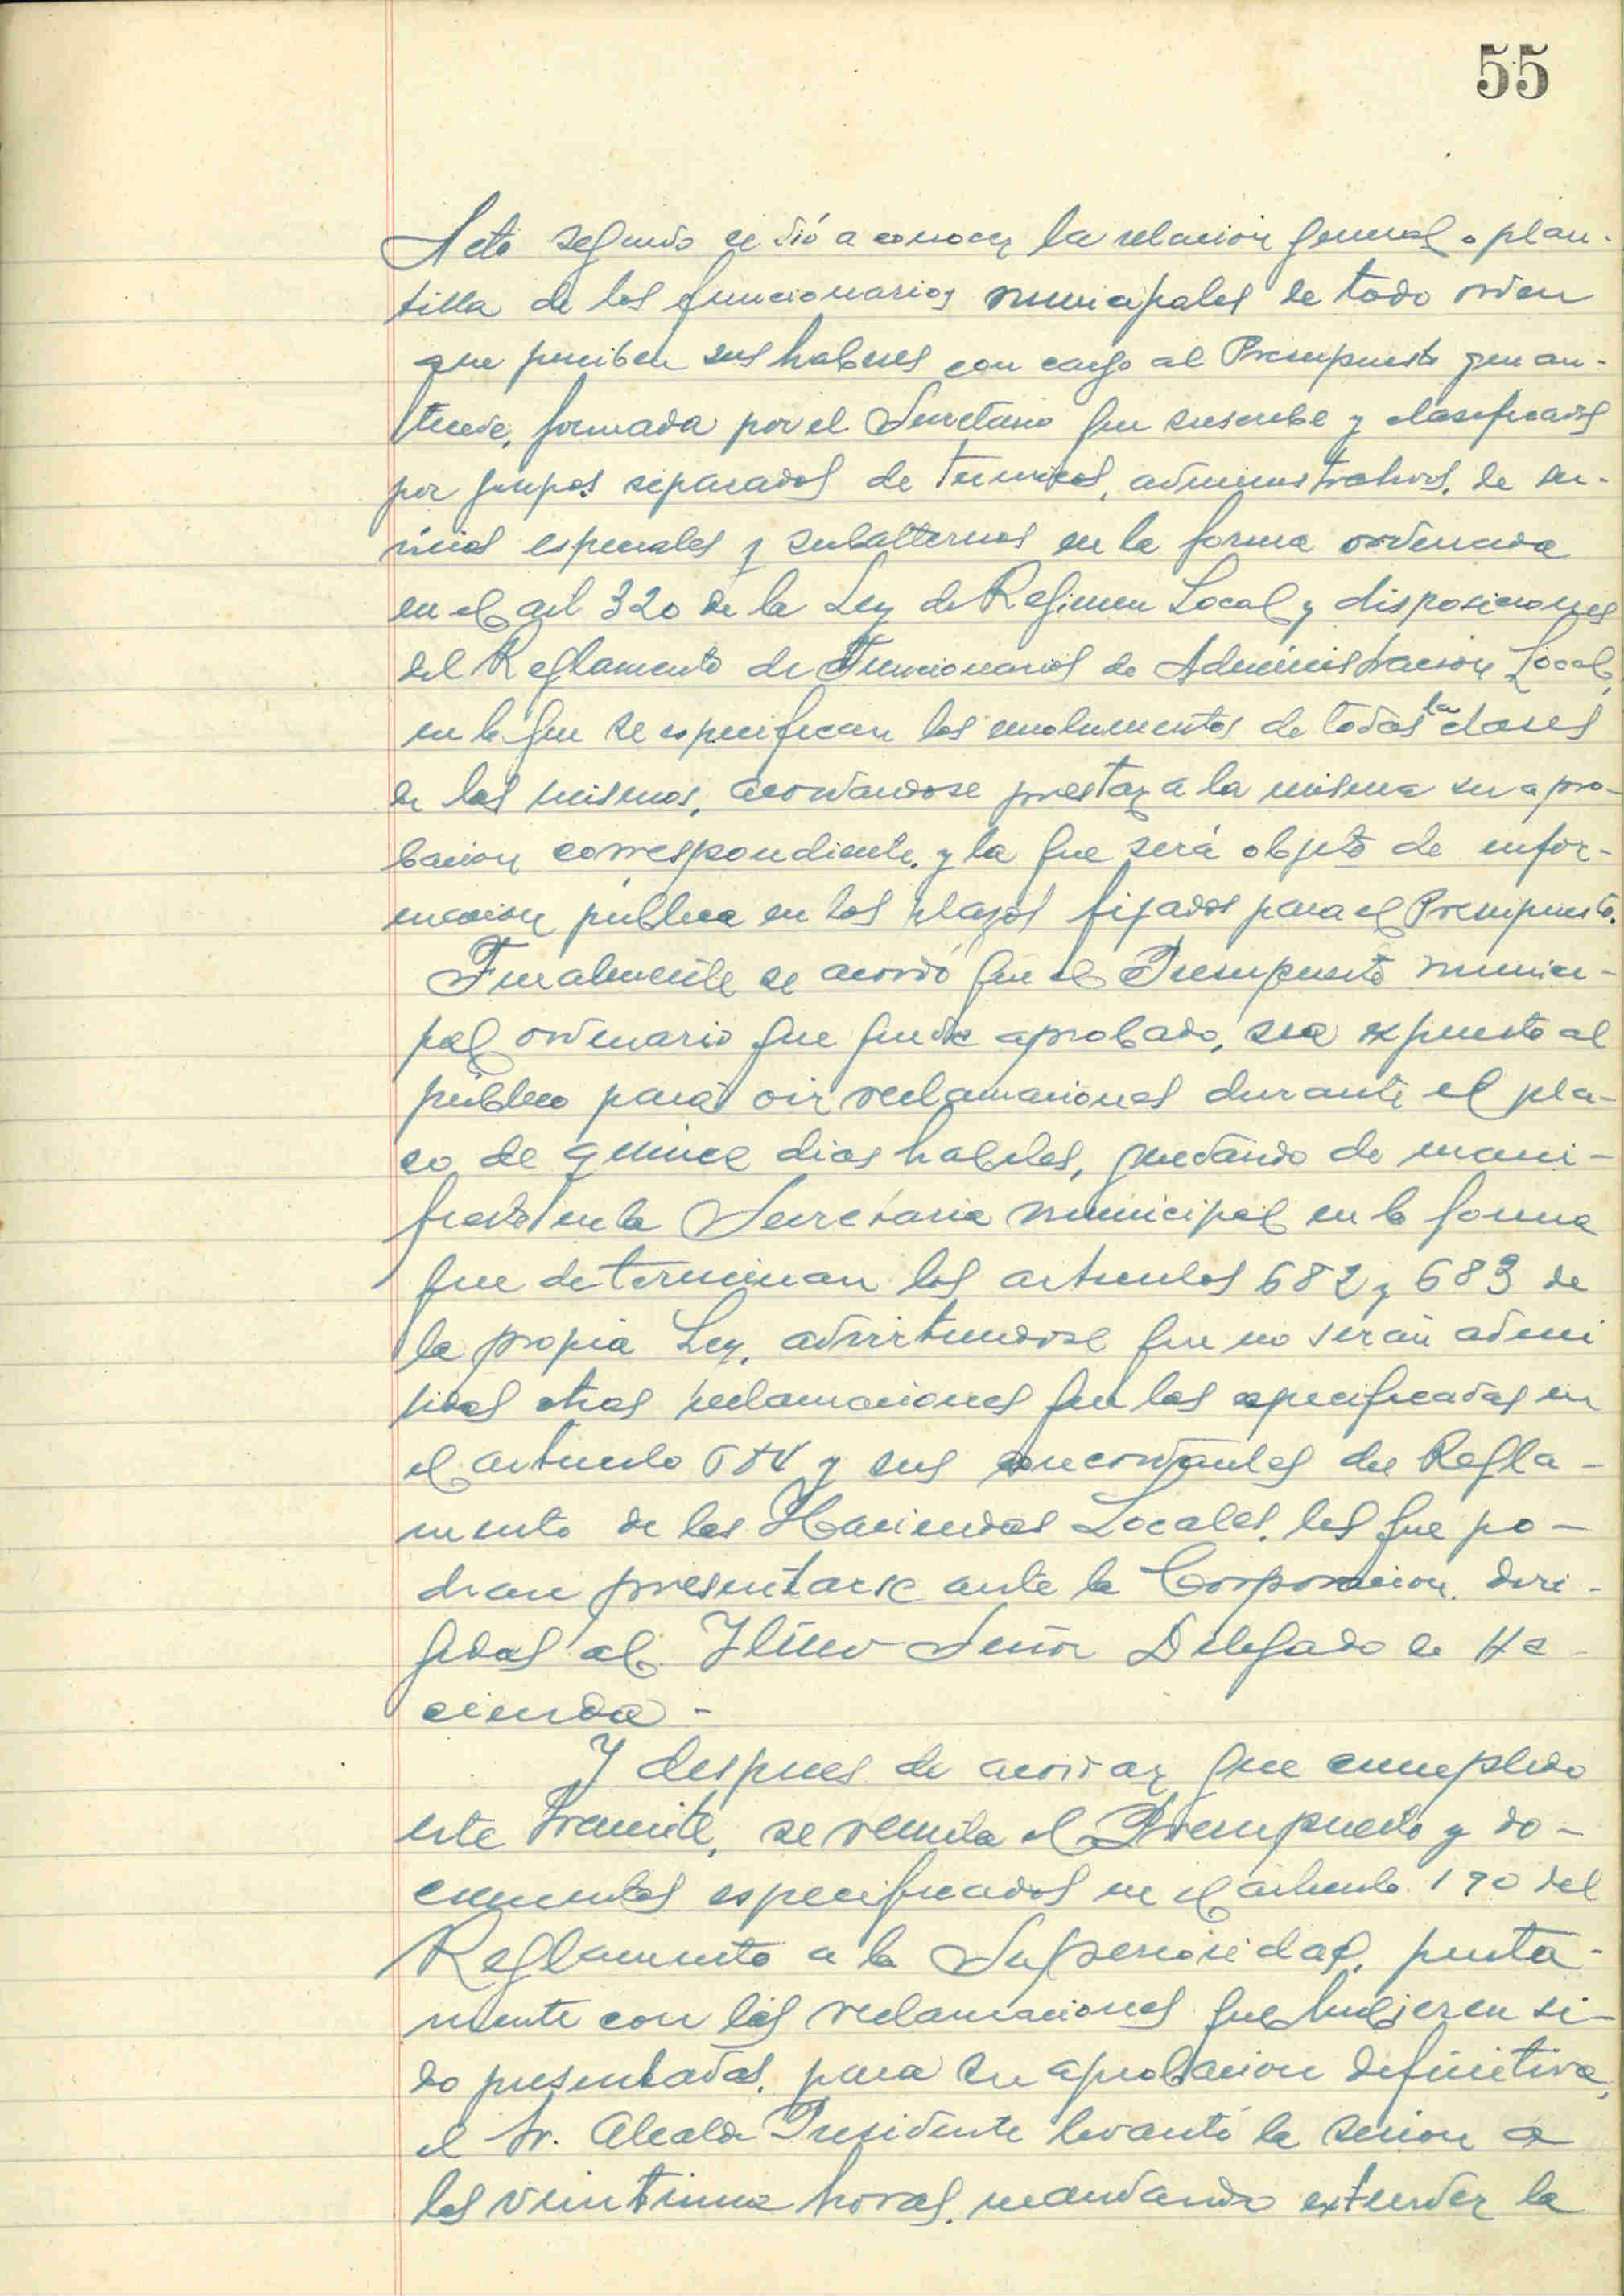 55
Acto seguido se dió a conocer la relacion general o plan-
tilla de los funcionarios municipales de todo orden
que perciben sus haberes con cargo al Presupuesto que an-
tecede, formada por el Secretario que suscribe y clasificados
por grupos separados de tecnicos, administrativos, de ser-
vicios especiales y subalternos en la forma ordenada
en el art 320 de la Ley de Regimen Local y disposiciones
del Reglamento de Funcionarios de Administracion Local,
en la que se especifican los emolumentos de todas la clases
de los mismos, acordandose prestar a la misma su apro-
bacion correspondiente, y la que será objeto de infor-
macion pública en los plazos fijados para el Presupuesto.
Finalmente se acordó que el Presupuesto munici-
pal ordinario que queda aprobado, sea expuesto al
público para oir reclamaciones durante el pla-
zo de quince dias habiles, quedando de mani-
fiesto en la Secretaria municipal en la forma
que determinan los articulos 682 y 683 de
la propia Ley, advirtiendose que no serán admi
tidas otras reclamaciones que las especificadas en
el articulo 684 y sus concordantes del Regla-
mento de las Haciendas Locales, las que po-
dran presentarse ante la Corporacion, diri-
gidas al Ilmo Señor Delegado de Ha-
cienda -
Y despues de acordar que cumplido
este tramite, se remita el Presupuesto y do-
cumentos especificados en el articulo 190 del
Reglamento a la Superioridad, junta-
mente con las reclamaciones que hubieren si-
do presentadas, para su aprobacion definitiva,
el Sr. Alcalde Presidente levantó la sesion a
las veintiuna horas, mandando extender la